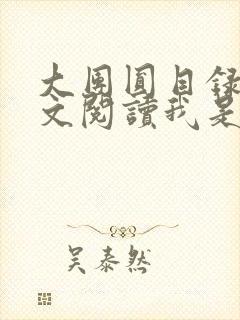 大團圓目錄
文閱讀我是
吴泰然